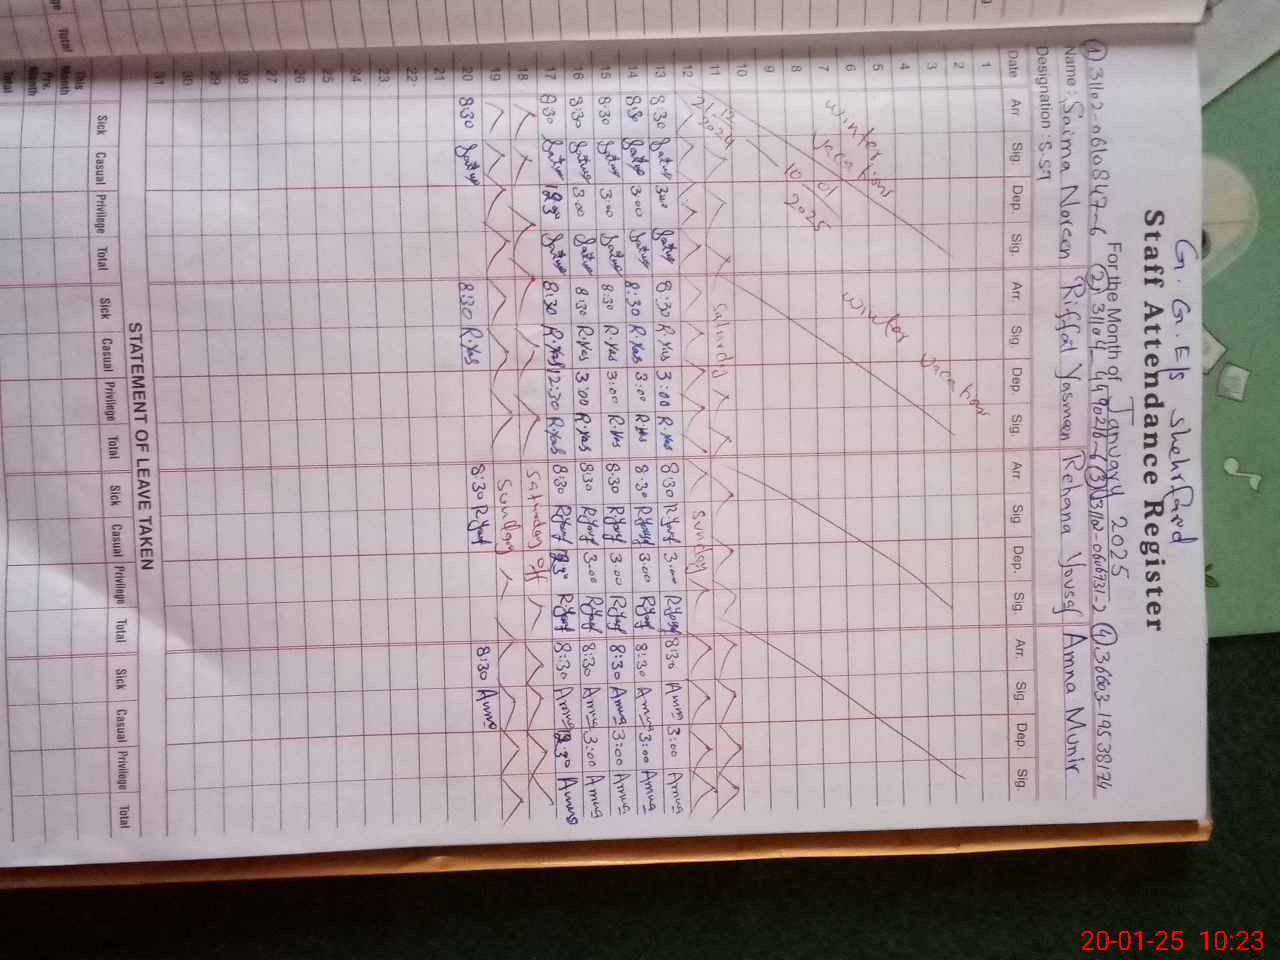 G.G.E/S Shehr Farid
Staff Attendance Register
For the Month of January 2025
① 31102-0610847-6 ② 31104-4490216-6 ③ 31102-0606731-2 ④ 36603-1953817-4
Name: Saima Noreen Riffat Yasmeen Rehana Yousaf Amna Munir
Designation: S.S.T
Date Arr Sig. Dep. Sig. Arr. Sig. Dep. Sig. Arr Sig Dep. Sig. Arr. Sig. Dep. Sig.
1
2
3
4
5 winter vacations winter vacation
6
7
8
9
10 21-12-2024 — 10-01-2025
11 Saturday
12 Sunday
13 8:30 3:00 8:30 R.Yas 3:00 R.Yas 8:30 R.Yousf 3:00 R.Yousf 8:30 Amna 3:00 Amna
14 8:30 3:00 8:30 R.Yas 3:00 R.Yas 8:30 R.Yousf 3:00 R.Yousf 8:30 Amna 3:00 Amna
15 8:30 3:00 8:30 R.Yas 3:00 R.Yas 8:30 R.Yousf 3:00 R.Yousf 8:30 Amna 3:00 Amna
16 8:30 3:00 8:30 R.Yas 3:00 R.Yas 8:30 R.Yousf 3:00 R.Yousf 8:30 Amna 3:00 Amna
17 8:30 12:30 8:30 R.Yas 12:30 R.Yas 8:30 R.Yousf 12:30 R.Yousf 8:30 Amna 12:30 Amna
18 Saturday off
19 Sunday
20 8:30 8:30 R.Yas 8:30 R.Yousf 8:30 Amna
21
22
23
24
25
26
27
28
29
30
31
STATEMENT OF LEAVE TAKEN
Sick Casual Privilege Total Sick Casual Privilege Total Sick Casual Privilege Total Sick Casual Privilege Total
This Month
Prv. Month
Total
20-01-25 10:23